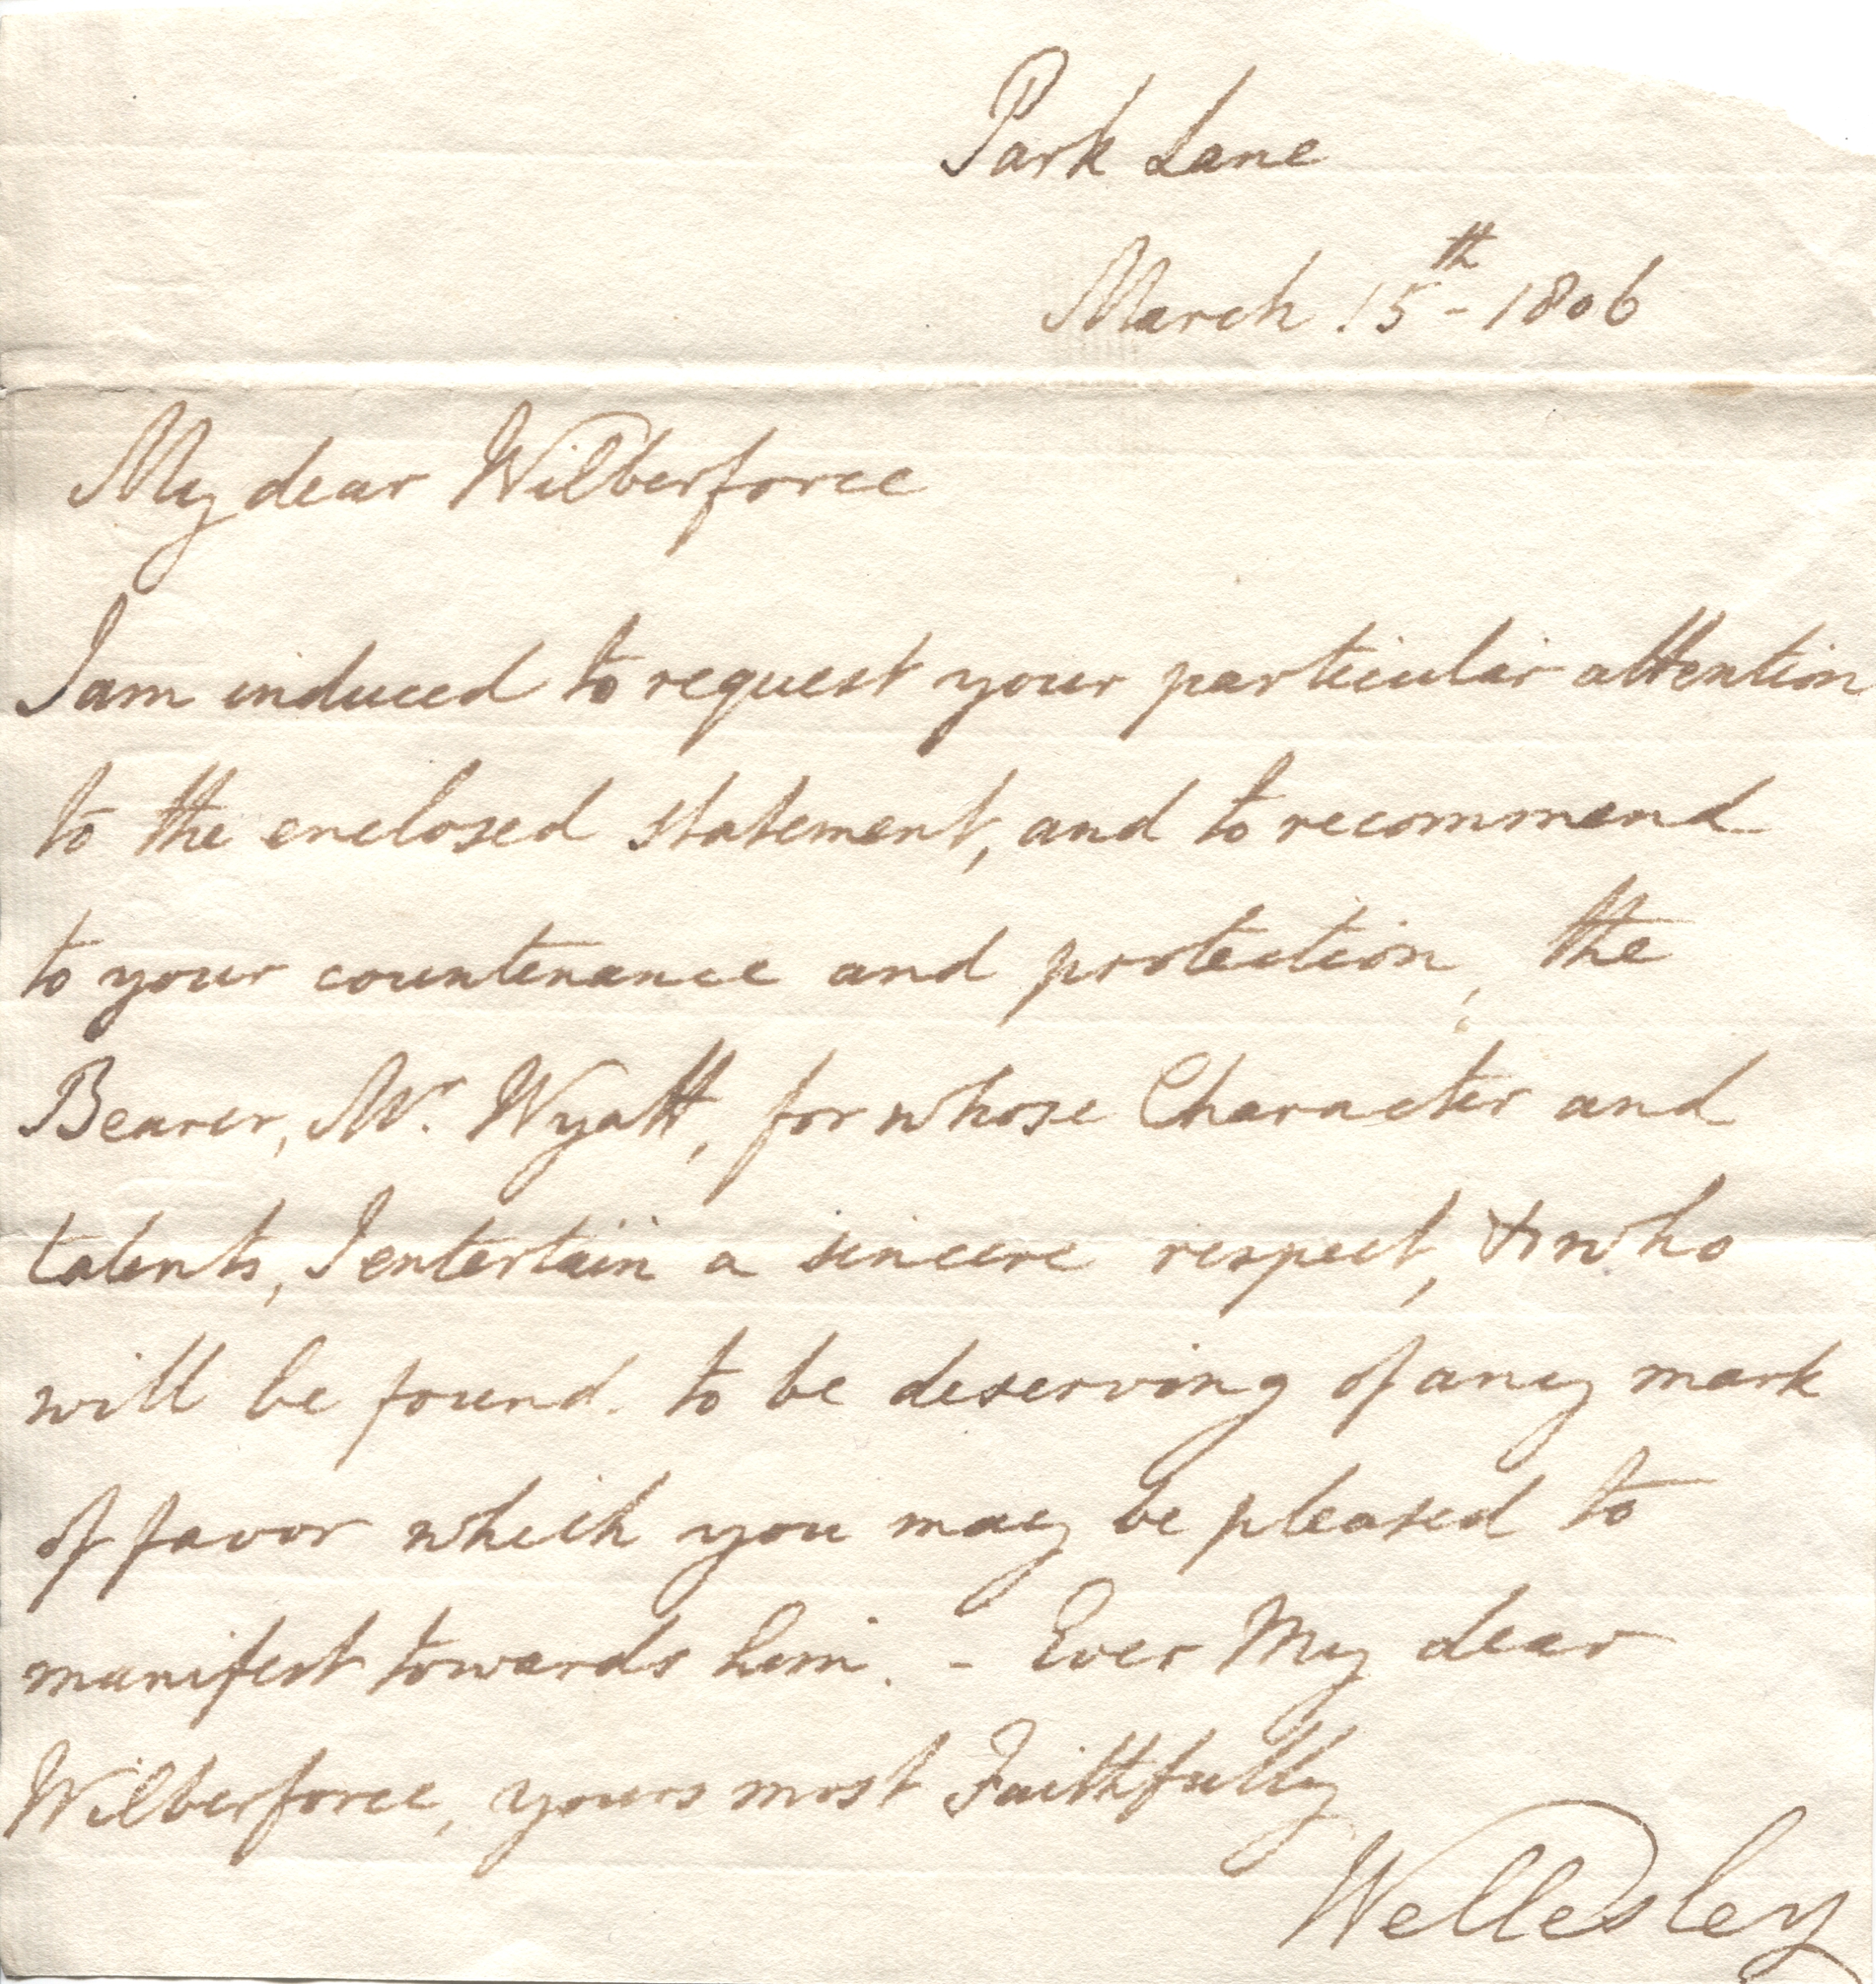 Park Lane
March 15th - 1806
My dear Wilberforce
I am induced to request your particular attention
to the enclosed statement, and to recommend
to your countenance and protection, the
Bearer, Mr. Wyatt, for whose Character and
talents, I entertain a sincere respect, & who
will be found to be deserving of any mark
of favor which you may be pleased to
manifest towards him. - Ever My dear
Wilberforce, yours most Faithfully
Wellesley